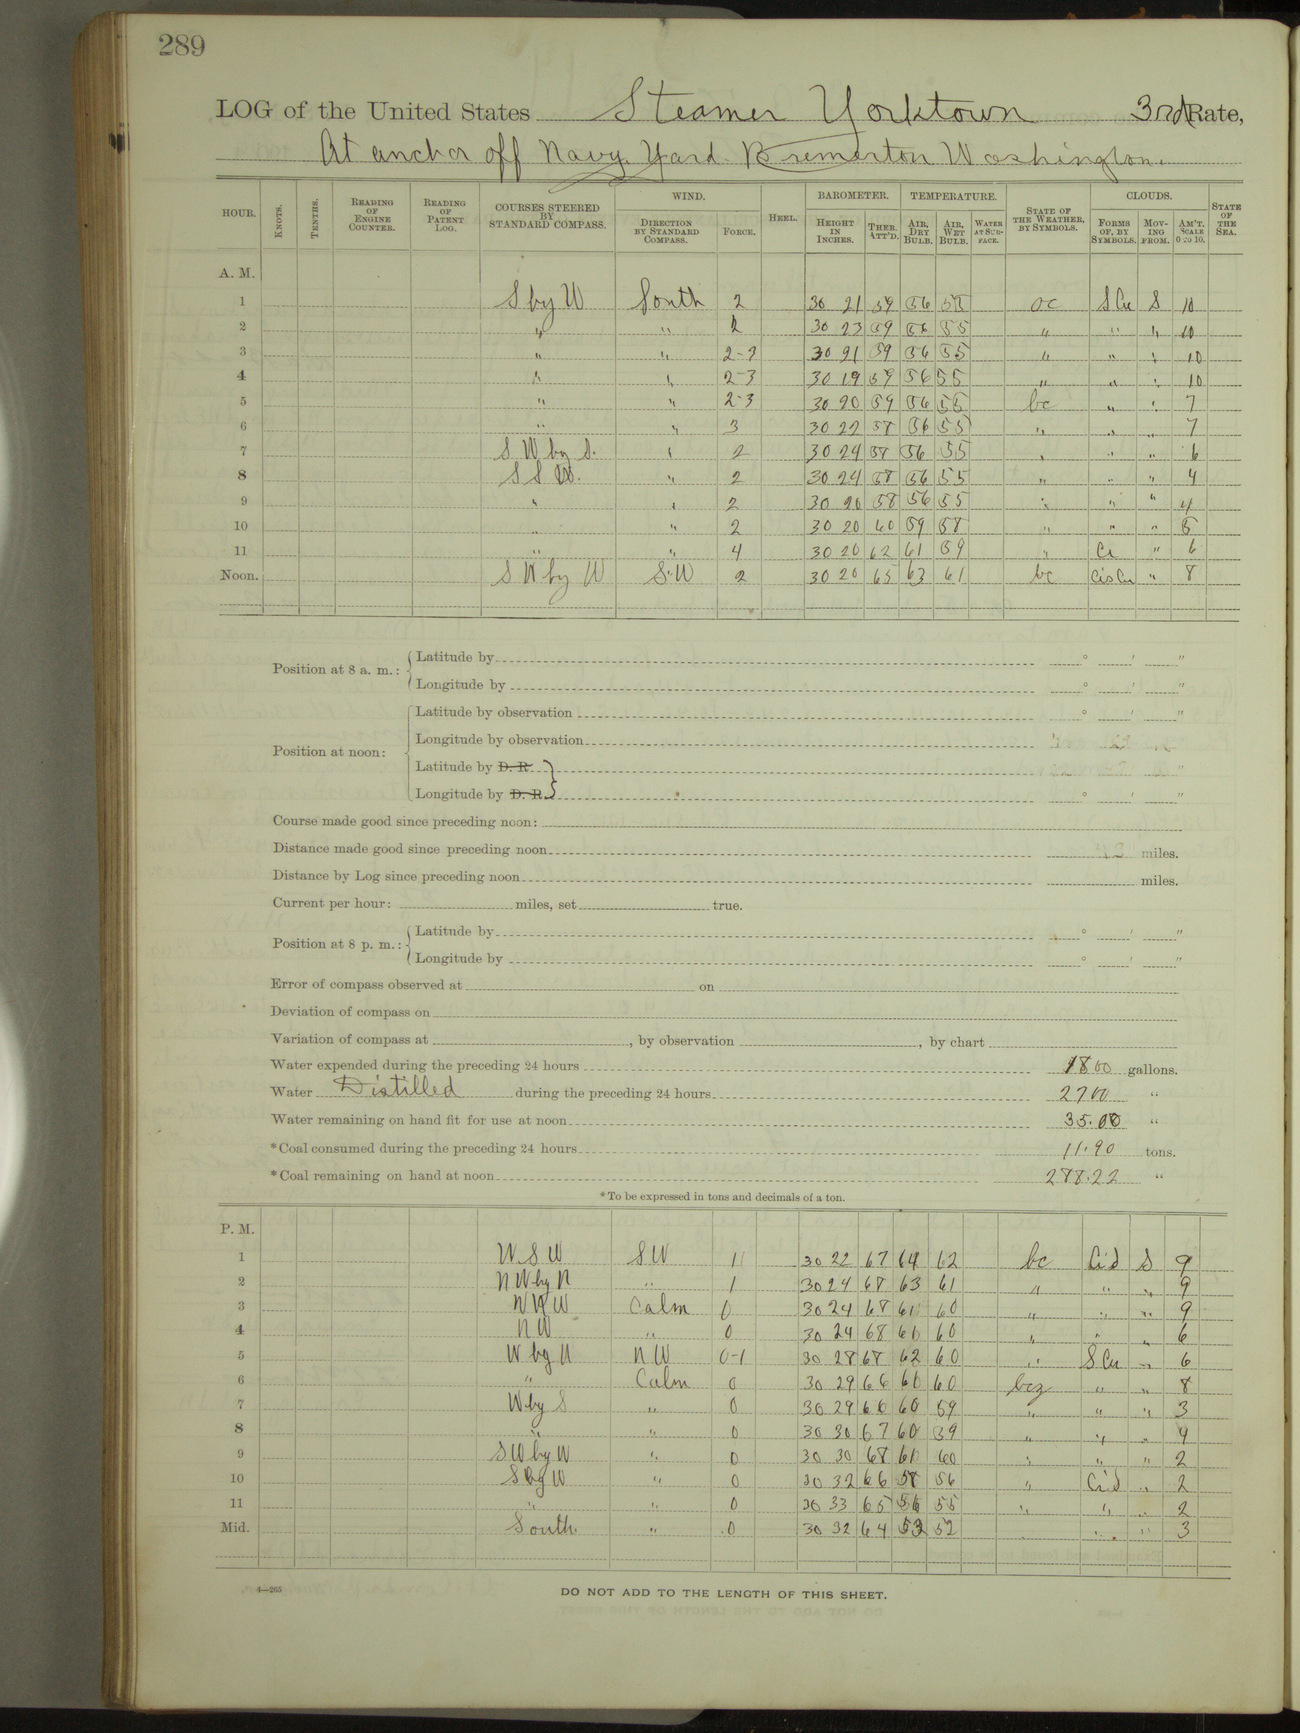 289
LOG of the United States Steamer Yorktown 3rd Rate,
At anchor off Navy Yard Bremerton Washington.
HOUR. KNOTS. TENTHS. READING OF ENGINE COUNTER. READING OF PATENT LOG. COURSES STEERED BY STANDARD COMPASS. WIND. DIRECTION BY STANDARD COMPASS. FORCE. HEEL. BAROMETER. HEIGHT IN INCHES. THER. ATT'D. TEMPERATURE. AIR, DRY BULB. AIR, WET BULB. WATER AT SURFACE. STATE OF THE WEATHER, BY SYMBOLS. CLOUDS. FORMS OF, BY SYMBOLS. MOVING FROM. AM'T. SCALE 0 TO 10. STATE OF THE SEA.
A. M.
1 S by W South 2 30 21 59 56 55 oc S Cu S 10
2 " " 2 30 23 59 56 55 " " " 10
3 " " 2-2 30 21 59 56 55 " " " 10
4 " " 2-3 30 19 59 56 55 " " " 10
5 " " 2-3 30 20 59 56 55 bc " " 7
6 " " 3 30 22 58 56 55 " " " 7
7 S W by S. " 2 30 24 58 56 55 " " " 6
8 S S W. " 2 30 24 58 56 55 " " " 4
9 " " 2 30 20 58 56 55 " " " 4
10 " " 2 30 20 60 59 58 " " " 5
11 " " 4 30 20 62 61 59 " Ci " 6
Noon. S W by W S.W 2 30 20 65 63 61 bc CisCu " 8
Position at 8 a. m.: Latitude by ° ' "
Longitude by ° ' "
Position at noon: Latitude by observation ° ' "
Longitude by observation
Latitude by D. R. "
Longitude by D. R. ° ' "
Course made good since preceding noon:
Distance made good since preceding noon miles.
Distance by Log since preceding noon miles.
Current per hour: miles, set true.
Position at 8 p. m.: Latitude by ° ' "
Longitude by ° ' "
Error of compass observed at on
Deviation of compass on
Variation of compass at , by observation , by chart
Water expended during the preceding 24 hours 1800 gallons.
Water Distilled during the preceding 24 hours 2700 "
Water remaining on hand fit for use at noon 35.00 "
*Coal consumed during the preceding 24 hours 11.90 tons.
*Coal remaining on hand at noon 288.22 "
*To be expressed in tons and decimals of a ton.
P. M.
1 W S W S W 1 30 22 67 64 62 bc Ci S S 9
2 N W by N " 1 30 24 68 63 61 " " " 9
3 N N W Calm 0 30 24 68 61 60 " " " 9
4 N W " 0 30 24 68 61 60 " " " 6
5 W by N N W 0-1 30 28 68 62 60 " S Cu " 6
6 " Calm 0 30 29 66 60 60 bcz " " 8
7 W by S " 0 30 29 66 60 59 " " " 3
8 " " 0 30 30 67 60 59 " " " 4
9 S W by W " 0 30 30 68 61 60 " " " 2
10 S by W " 0 30 32 66 58 56 " Ci S " 2
11 " " 0 30 33 65 56 55 " " " 2
Mid. South " 0 30 32 64 53 52 " " 3
4—265
DO NOT ADD TO THE LENGTH OF THIS SHEET.